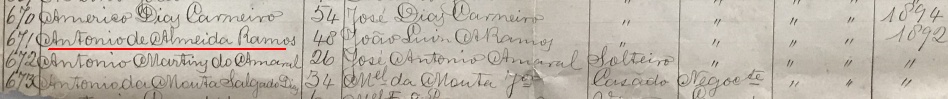 670 Americo Dias Carneiro 54 José Dias Carneiro " " " 1894
671 Antonio de Almeida Ramos 48 João Luiz A Ramos " " " 1892
672 Antonio Martins do Amaral 26 José Antonio Amaral Solteiro " " "
673 Antonio da Motta Salgado 34 Mel da Motta Casado Negocte " " "